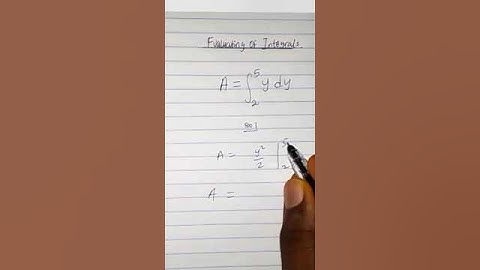 Evaluating Of Integrals
A = ∫₂⁵ y dy
Sol
A = y²/2 |₂⁵
A =